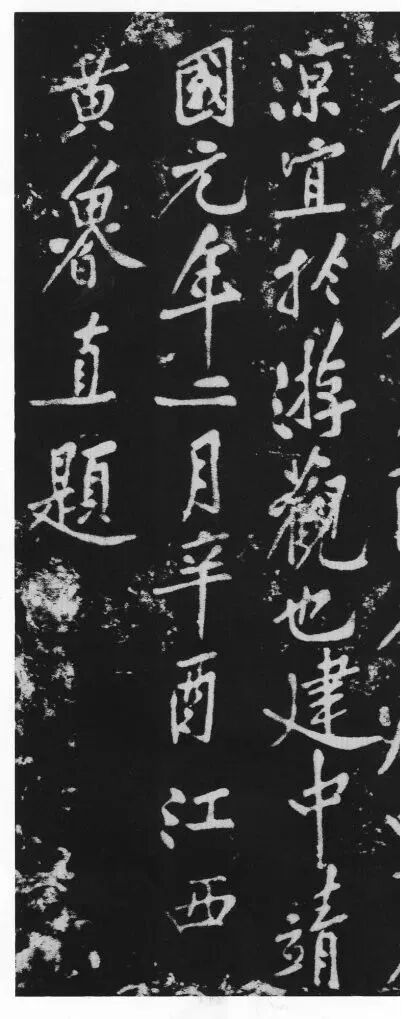 涼宜於游觀也建中靖
國元年二月辛酉江西
黄魯直題